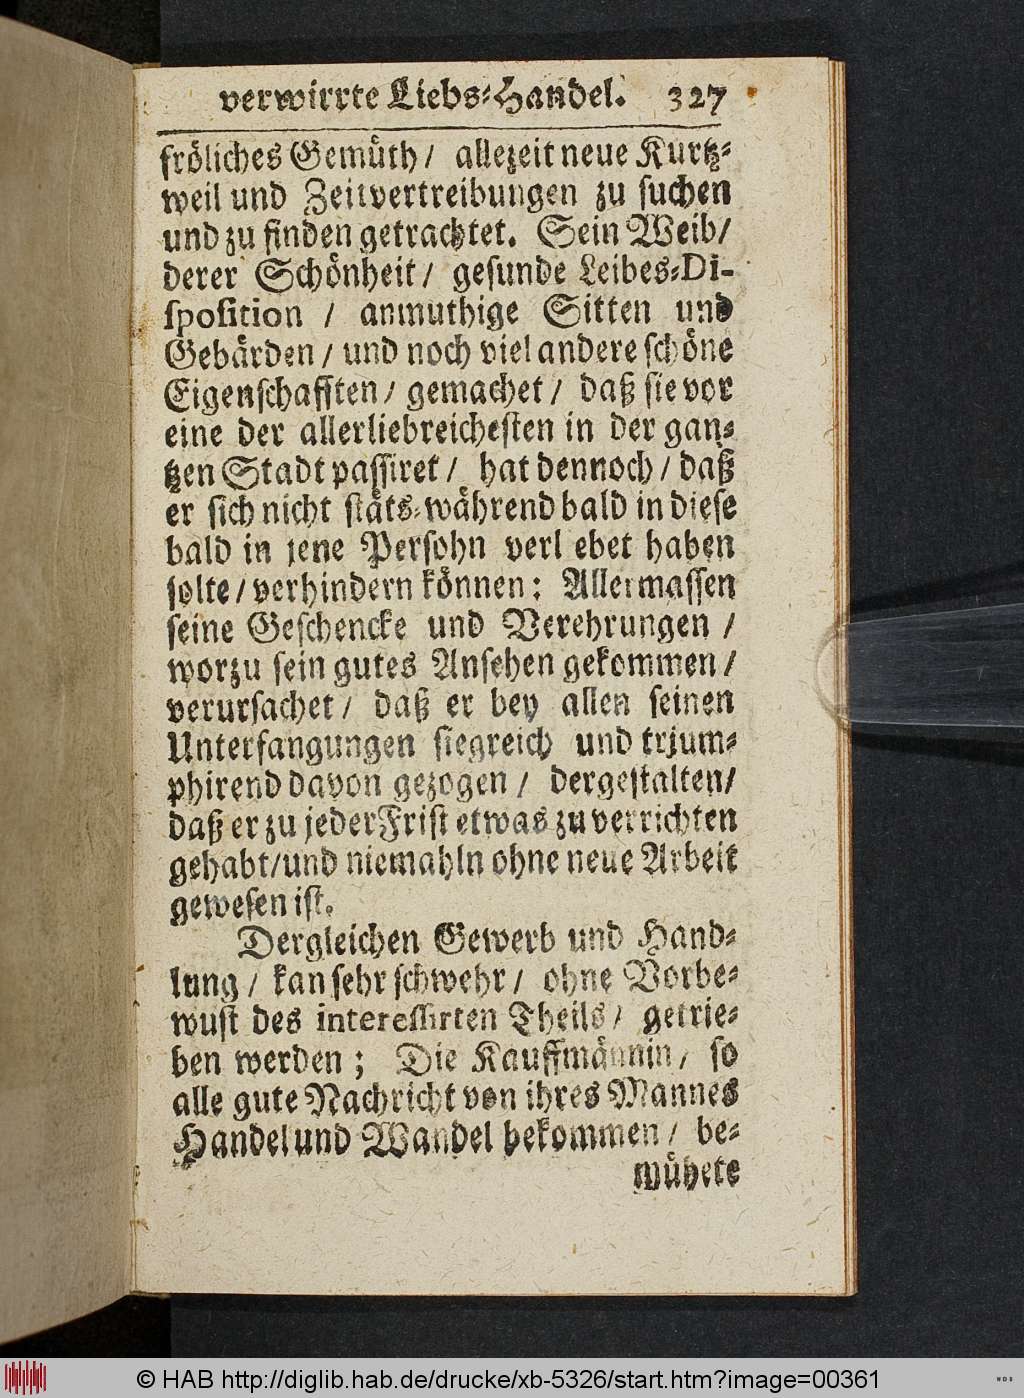 verwirrte Liebs-Handel. 327
fröliches Gemüth / allezeit neue Kurtz-
weil und Zeitvertreibungen zu suchen
und zu finden getrachtet. Sein Weib /
derer Schönheit / gesunde Leibes-Di-
sposition / anmuthige Sitten und
Gebärden / und noch viel andere schöne
Eigenschafften / gemachet / daß sie vor
eine der allerliebreichesten in der gan-
tzen Stadt passiret / hat dennoch / daß
er sich nicht stäts-während bald in diese
bald in jene Persohn verl ebet haben
solte / verhindern können: Allermassen
seine Geschencke und Verehrungen /
worzu sein gutes Ansehen gekommen /
verursachet / daß er bey allen seinen
Unterfangungen siegreich und trjum-
phirend davon gezogen / dergestalten /
daß er zu jeder Frist etwas zu verrichten
gehabt / und niemahln ohne neue Arbeit
gewesen ist.
Dergleichen Gewerb und Hand-
lung / kan sehr schwehr / ohne Vorbe-
wust des interessirten Theils / getrie-
ben werden; Die Kauffmännin / so
alle gute Nachricht von ihres Mannes
Handel und Wandel bekommen / be-
mühete
© HAB http://diglib.hab.de/drucke/xb-5326/start.htm?image=00361